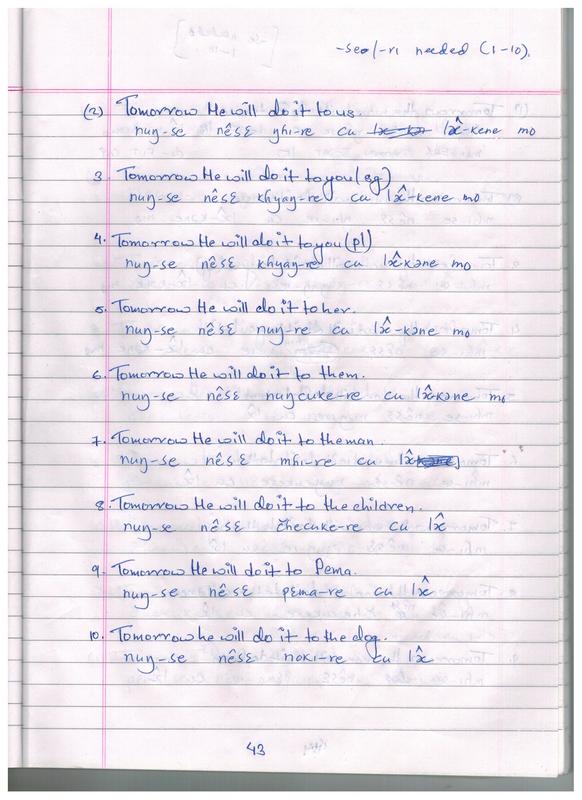 -seo/-ri needed (1-10).
(2) Tomorrow He will do it to us.
nuŋ-se nêsɛ ŋhi-re cu lx̂-kene mo
3. Tomorrow He will do it to you (sg)
nuŋ-se nêsɛ khyaŋ-re cu lx̂-kene mo
4. Tomorrow He will do it to you (pl)
nuŋ-se nêsɛ khyaŋ-re cu lx̂kəne mo
5. Tomorrow He will do it to her.
nuŋ-se nêsɛ nuŋ-re cu lx̂-kəne mo
6. Tomorrow He will do it to them.
nuŋ-se nêsɛ nuŋcuke-re cu lx̂kəne mo
7. Tomorrow He will do it to the man.
nuŋ-se nêsɛ mhi-re cu lx̂
8. Tomorrow He will do it to the children.
nuŋ-se nêsɛ čhecuke-re cu lx̂
9. Tomorrow He will do it to Pema.
nuŋ-se nêsɛ pema-re cu lx̂
10. Tomorrow he will do it to the dog.
nuŋ-se nêsɛ noki-re cu lx̂
43